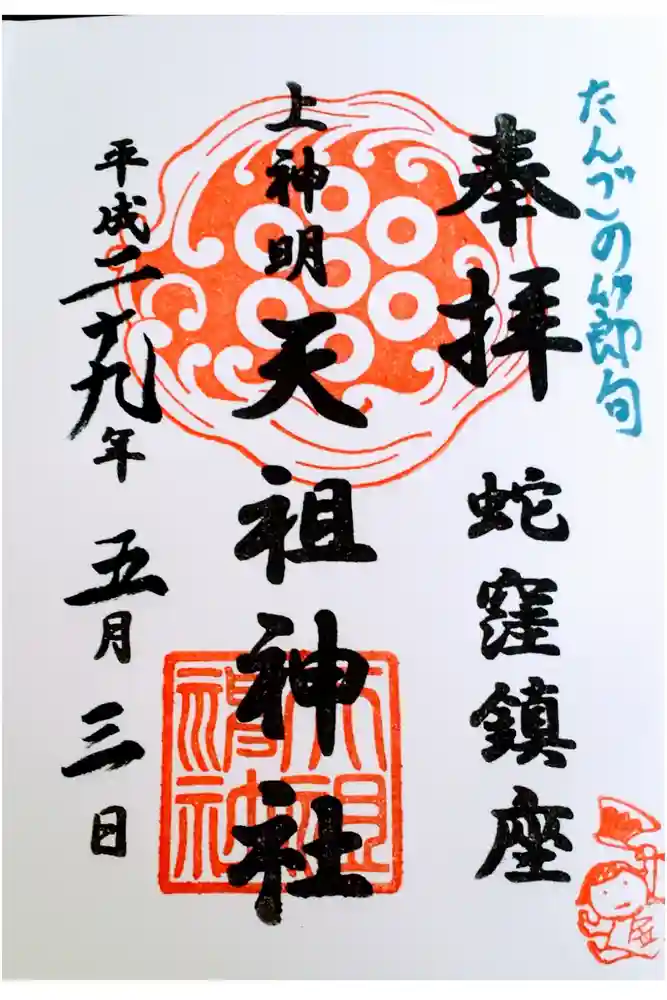 たんごの節句
奉拝
蛇窪鎮座
上神明天祖神社
平成二十九年五月三日